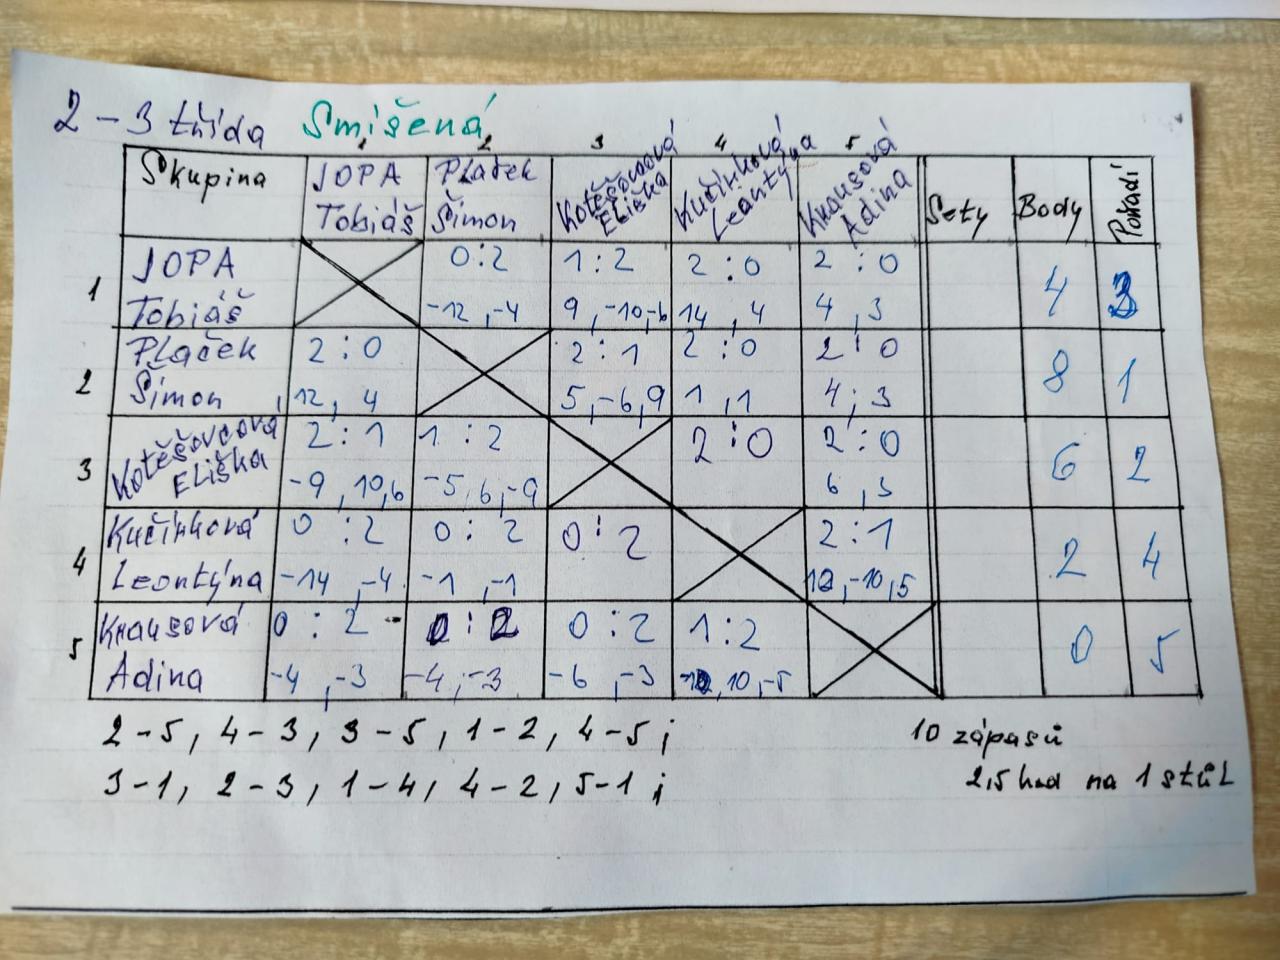 2 - 3 třída Smíšená
1 2 3 4 5
Skupina JOPA Tobiáš Plaček Šimon Kotěšovcová Eliška Kučírková Leontýna Krausová Adina Sety Body Pořadí
1 JOPA 0:2 1:2 2:0 2:0 4 3
Tobiáš -12, -4 9, -10, -6 14, 4 4, 3
2 Plaček 2:0 2:1 2:0 2:0 8 1
Šimon 12, 4 5, -6, 9 1, 1 4; 3
3 Kotěšovcová 2:1 1:2 2:0 2:0 6 2
Eliška -9, 10, 6 -5, 6, -9 6, 3
4 Kučírková 0:2 0:2 0:2 2:1 2 4
Leontýna -14, -4 -1, -1 12, -10, 5
5 Krausová 0:2 0:2 0:2 1:2 0 5
Adina -4, -3 -4, -3 -6, -3 10, -5
2-5, 4-3, 3-5, 1-2, 4-5;
10 zápasů
3-1, 2-3, 1-4, 4-2, 5-1;
2,5 hod na 1 stůl